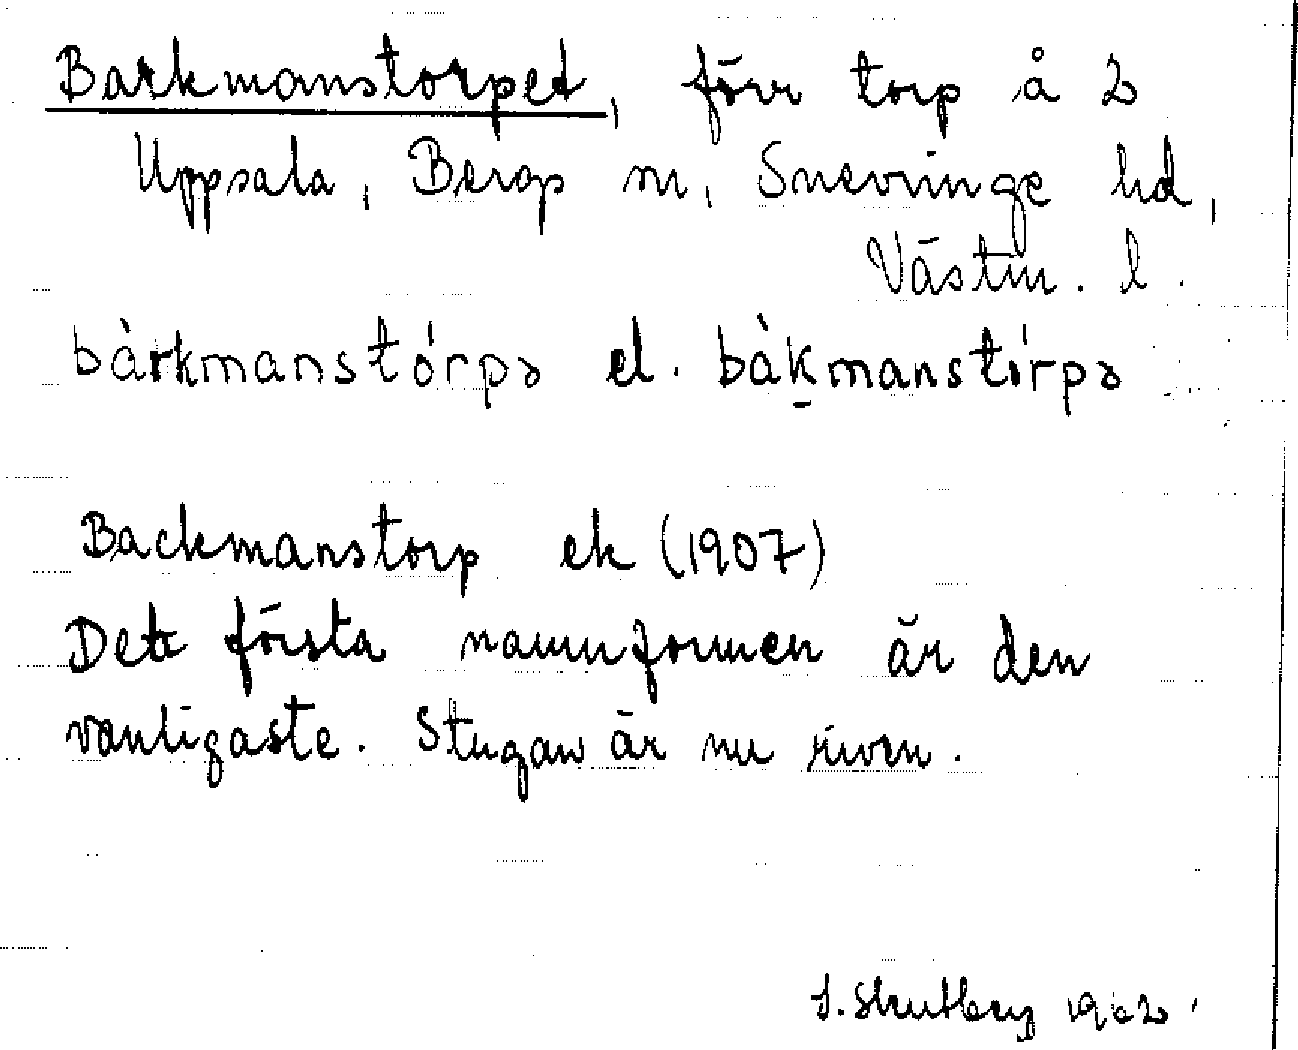 Barkmanstorpet, förr torp å 2
Uppsala, Bergs sn, Snevringe hd,
Västm. l.
bàrkmanstórpə el. bàk̠manstórpə
Backmanstorp ek (1907)
Det första namnformen är den
vanligaste. Stugan är nu riven.
S. Skutberg 1962.